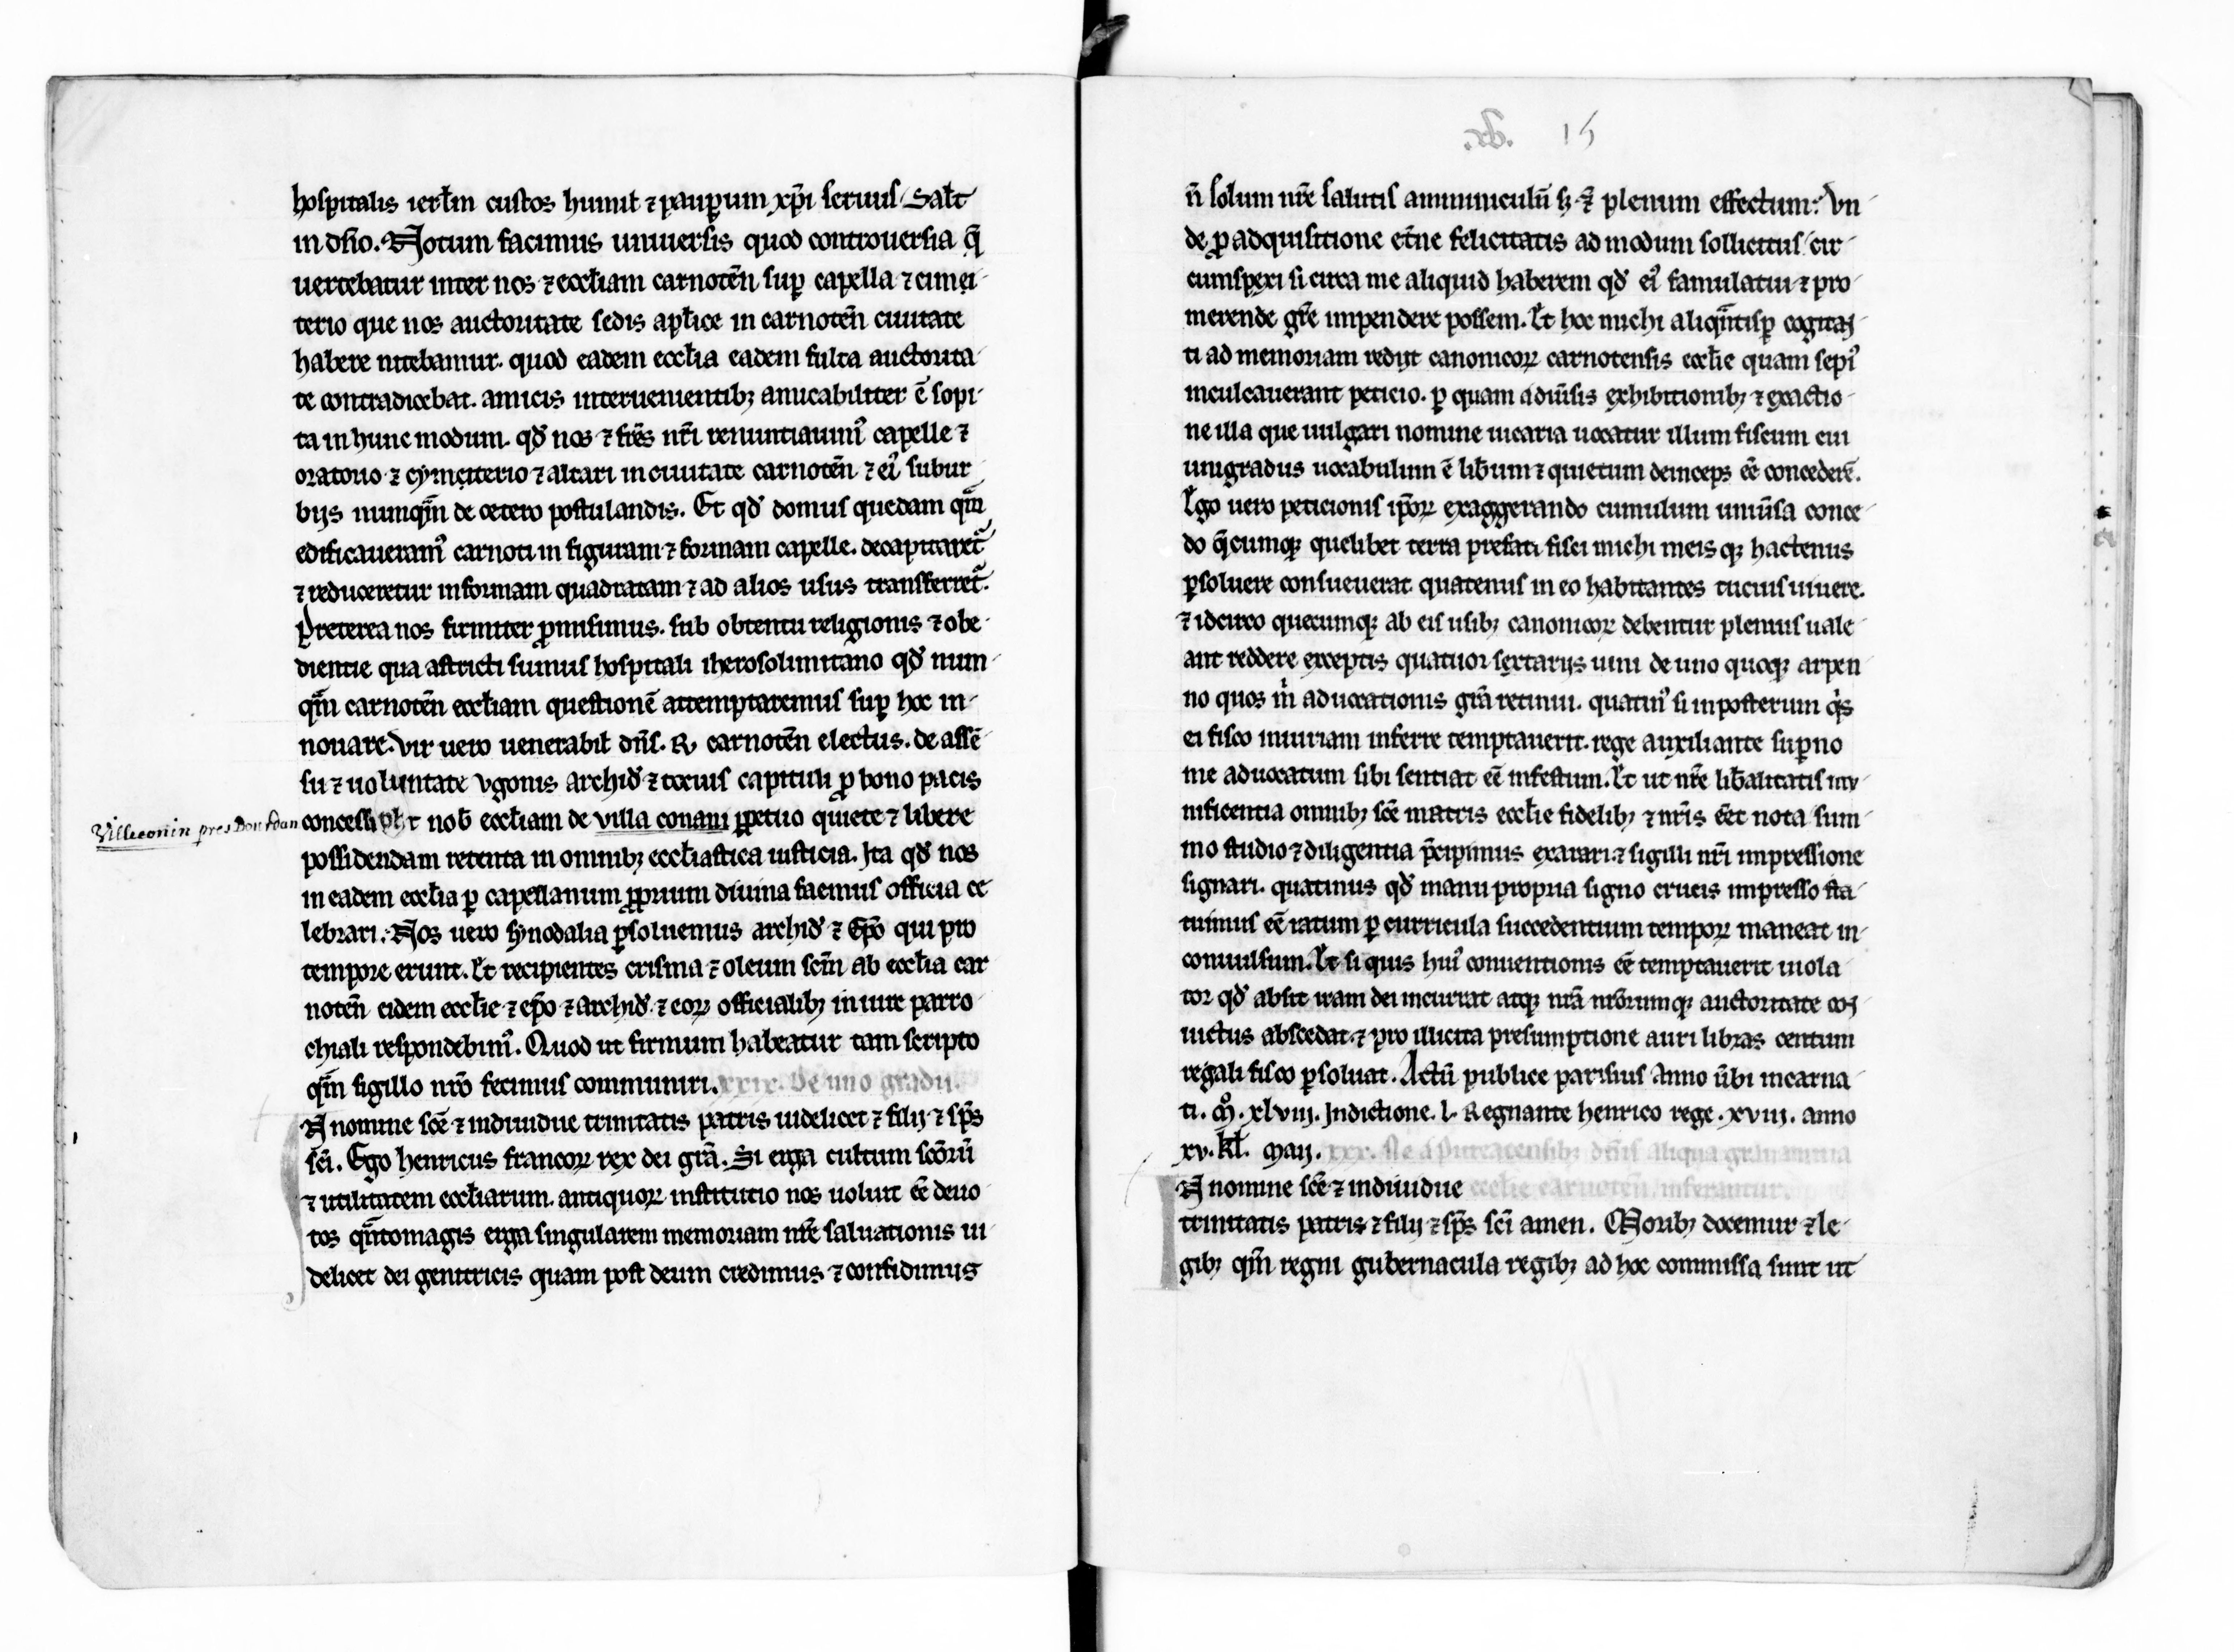 hospitalis ierłm custos humił ⁊ pauꝑum xp̄i seruus / Salt̄
in dño. Notum facimus uniuersis quod controuersia q̄
uertebatur inter nos ⁊ eccłiam carnoteñ suꝑ capella ⁊ cimei-
terio que nos auctoritate sedis apłice in carnoteñ ciuitate
habere nitebamur. quod eadem eccłia eadem fulta auctorita-
te contradicebat. amicis interuenientibꝫ amicabiliter ē sopi-
ta in hunc modum. qđ nos ⁊ fr̄es nr̄i renuntiauimꝰ capelle ⁊
oratorio ⁊ cymeiterio ⁊ altari in ciuitate carnoteñ ⁊ eiꝰ subur-
bijs nunqm̄ de cetero postulandis. Et qđ domus quedam qm̄
edificaueramꝰ carnoti in figuram ⁊ formam capelle. decapitaret᷑
⁊ reduceretur in formam quadratam ⁊ ad alios usus transferret᷑.
Preterea nos firmiter ꝓmisimus. sub obtentu religionis ⁊ obe-
dientie qua astricti sumus hospitali iherosolimitano qđ num-
qm̄ carnoteñ eccłiam questionē attemptaremus suꝑ hoc in-
nouare. Vir uero uenerabił dñs. R. carnoteñ electus. de assē-
su ⁊ uoluntate vgonis archid̄ ⁊ tocius capituli ꝓ bono pacis
Villeconin pres Dourdan
concessit nob̄ eccłiam de villa conani ꝑpetuo quiete ⁊ libere
possidendam retenta in omnibꝫ eccłiastica iusticia. Ita qđ nos
in eadem eccłia ꝑ capellanum ꝓprium diuina faciemus officia ce-
lebrari. Nos uero synodalia ꝑsoluemus archid̄ ⁊ ep̄o qui pro
tempore erunt. Et recipientes crisma ⁊ oleum scm̄ ab eccłia car-
noteñ eidem eccłie ⁊ ep̄o ⁊ archid̄ ⁊ eoꝝ officialibꝫ in iure parro-
chiali respondebimꝰ. Quod ut firmum habeatur tam scripto
qm̄ sigillo nr̄o fecimus communiri. xxix. De uno gradu.
In nomine scē ⁊ indiuidue trinitatis patris uidelicet ⁊ filij ⁊ sp̄s
sci̅. Ego henricus francoꝝ rex dei grā. Si erga cultum scōrū
⁊ utilitatem eccłiarum. antiquoꝝ institutio nos uoluit eē deuo-
tos qn̄tomagis erga singularem memoriam nr̄e saluationis ui-
delicet dei genitricis quam post deum credimus ⁊ confidimus
15
ñ solum nr̄e salutis amminiculū sꝫ ⁊ plenum effectum: Vn-
de ꝓ adquisitione et̄ne felicitatis admodum sollicitus / cir-
cumspexi si circa me aliquid haberem qđ eiꝰ famulatui ⁊ pro-
merende gr̄e impendere possem. Et hoc michi aliqn̄tisꝑ cogitan-
ti ad memoriam redijt canonicoꝝ carnotensis eccłie quam sepiꝰ
inculcauerant peticio. ꝑ quam a diūsis exhibitionibꝫ ⁊ exactio-
ne illa que uulgari nomine uicaria uocatur illum fiscum cui
unigradus uocabulum ē lib̄um ⁊ quietum deinceps eē concederē.
Ego uero peticionis ip̄oꝝ exaggerando cumulum uniūsa conce-
do q̄cumqꝫ quelibet terra prefati fisci michi meisqꝫ hactenus
ꝑsoluere consueuerat quatenus in eo habitantes tucius uiuere.
⁊ idcirco quecumqꝫ ab eis usibꝫ canonicoꝝ debentur plenius uale-
ant reddere exceptis quatuor sextarijs uini de uno quoqꝫ arpen-
no quos m̄ aduocationis grā retinui. quatinꝰ si inposterum qͥs
ei fisco iniuriam inferre temptauerit. rege auxiliante suꝑno
me aduocatum sibi sentiat eē infestum. Et ut nr̄e lib̄alitatis mu-
nificentia omnibꝫ scē matris eccłie fidelibꝫ ⁊ nr̄is eēt nota sum-
mo studio ⁊ diligentia p̄cipimus exarari ⁊ sigilli nr̄i impressione
signari. quatinus qđ manu propria signo crucis impresso sta-
tuimus eē ratum ꝑ curricula succedentium tempoꝝ maneat in-
conuulsum. Et si quis huiꝰ conuentionis eē temptauerit uiola-
tor qđ absit iram dei incurrat atqꝫ nr̄a nr̄orumqꝫ auctoritate con-
uictus abscedat ⁊ pro illicita presumptione auri libras centum
regali fisco ꝑsoluat. Actū publice parisius Anno ūbi incarna-
ti. M̊. xlviii. Indictione. I. Regnante henrico rege. xviii. anno
xv. kł. Maij. xxx. Ne a Puteacensibꝫ dñis aliqua grauamina
In nomine scē ⁊ indiuidue eccłie carnoteñ inferantur.
trinitatis patris ⁊ filij ⁊ sp̄s sci̅ amen. Moribꝫ docemur ⁊ le-
gibꝫ qm̄ regni gubernacula regibꝫ ad hoc commissa sunt ut